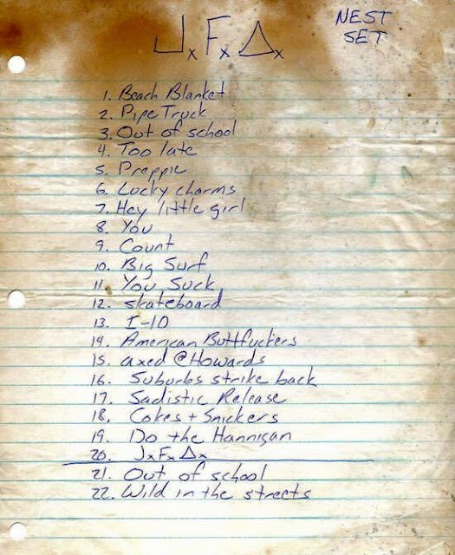 NEST
SET
JxFxΔx
1. Beach Blanket
2. Pipe Truck
3. Out of school
4. Too late
5. Preppie
6. Lucky charms
7. Hey little girl
8. You
9. Count
10. Big Surf
11. You Suck
12. skateboard
13. I-10
14. American Buttfuckers
15. axed @ Howards
16. Suburbs strike back
17. Sadistic Release
18. Cokes + Snickers
19. Do the Hannigan
20. JxFxΔx
21. Out of school
22. Wild in the streets